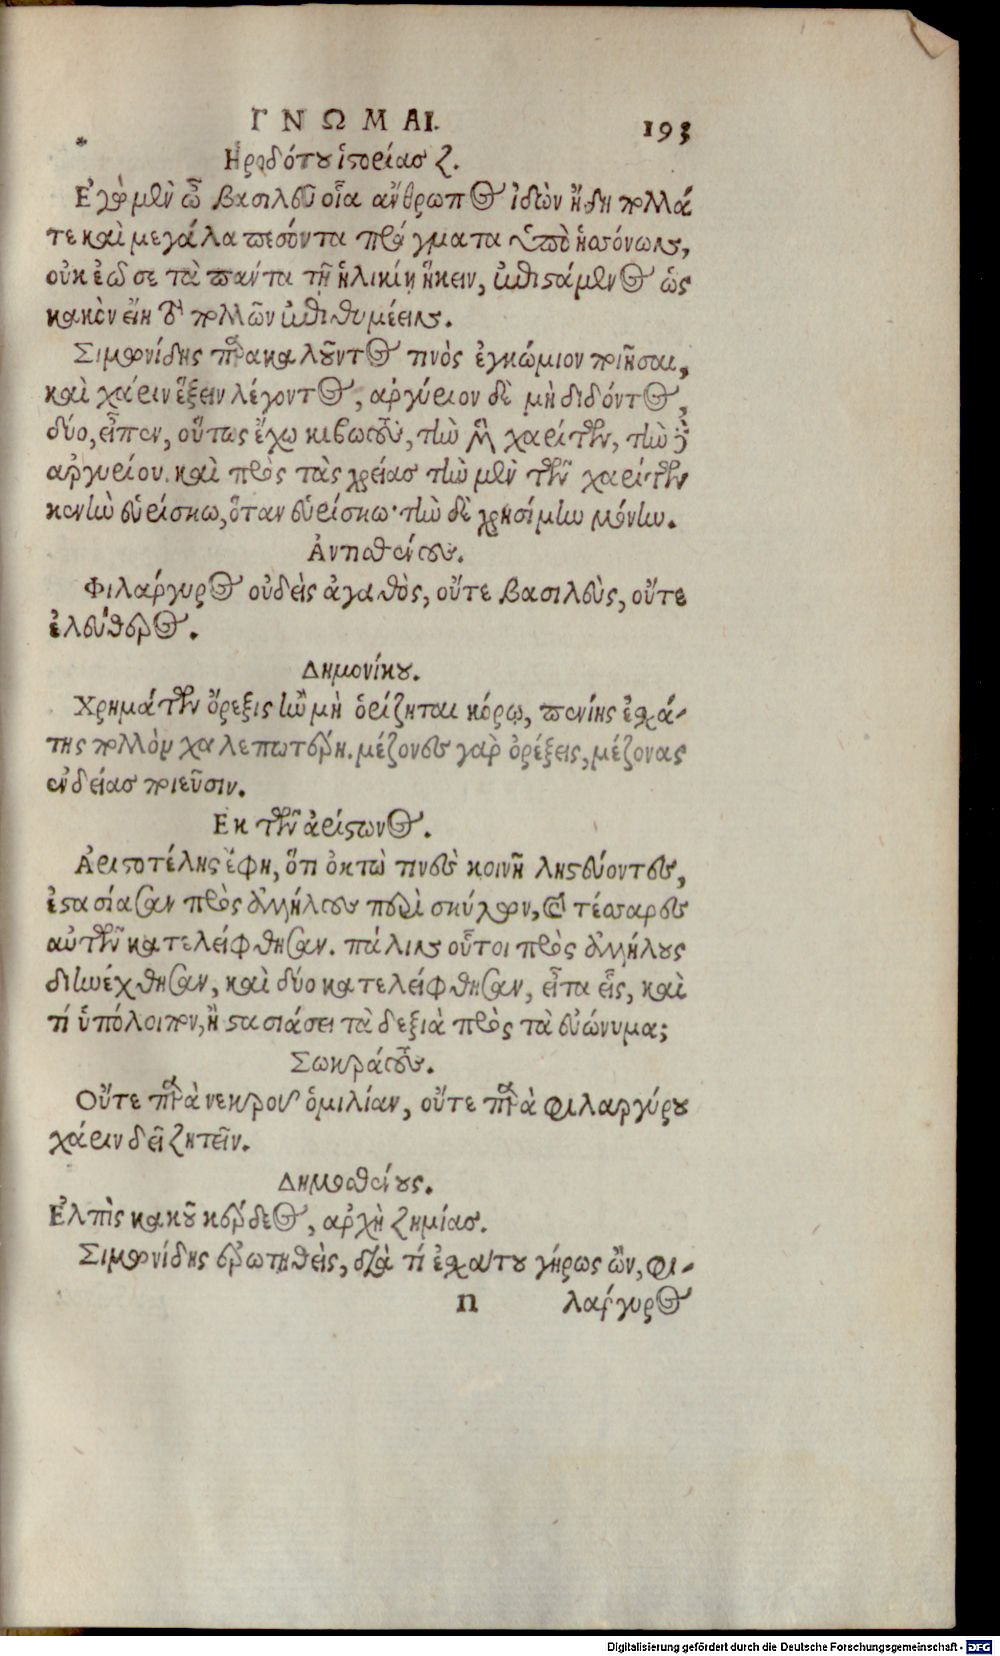 ΓΝΩΜΑΙ. 193
*
Ηροδότου ἱστορίας ζ.
Ἐγὼ μὲν ὦ βασιλεῦ οἷα ἄνθρωπος ἰδὼν ἤδη πολλά
τε καὶ μεγάλα πεσόντα πράγματα ὑπὸ ἡσσόνων,
οὐκ ἐῶ σε τὰ πάντα τῇ ἡλικίῃ ἥκειν, ἐπιστάμενος ὡς
κακὸν εἴη τὸ πολλῶν ἐπιθυμέειν.
Σιμωνίδης παρακαλοῦντος τινὸς ἐγκώμιον ποιῆσαι,
καὶ χάριν ἕξειν λέγοντος, ἀργύριον δὲ μὴ διδόντος,
δύο, εἶπεν, οὗτος ἔχω κιβωτούς, τὴν μὲν χαρίτων, τὴν δὲ
ἀργυρίου. καὶ πρὸς τὰς χρείας τὴν μὲν τῶν χαρίτων
κενὴν εὑρίσκω, ὅταν εὑρίσκω· τὴν δὲ χρησίμην μόνην.
Ἀντισθένους.
Φιλάργυρος οὐδεὶς ἀγαθὸς, οὔτε βασιλεὺς, οὔτε
ἐλεύθερος.
Δημονίκου.
Χρημάτων ὄρεξις ἢν μὴ ὁρίζηται κόρῳ, πενίης ἐσχά-
της πολλὸν χαλεπωτέρη. μέζονες γὰρ ὀρέξεις, μέζονας
ἐνδείας ποιεῦσιν.
Εκ τῶν ἀρίστωνος.
Ἀριστοτέλης ἔφη, ὅτι ὀκτὼ τινες κοινῇ λῃστεύοντες,
ἐστασίασαν πρὸς ἀλλήλους περὶ σκύλων, καὶ τέσσαρες
αὐτῶν κατελείφθησαν. πάλιν οὗτοι πρὸς ἀλλήλους
διηνέχθησαν, καὶ δύο κατελείφθησαν, εἶτα εἷς, καὶ
τί ὑπόλοιπον, ἢ στασιάσει τὰ δεξιὰ πρὸς τὰ εὐώνυμα;
Σωκράτους.
Οὔτε παρὰ νεκροῦ ὁμιλίαν, οὔτε παρὰ φιλαργύρου
χάριν δεῖ ζητεῖν.
Δημοσθένους.
Ἐλπὶς κακοῦ κέρδεος, ἀρχὴ ζημίας.
Σιμωνίδης ἐρωτηθεὶς, διὰ τί ἐσχάτου γήρως ὢν, φι-
n λάργυρος
Digitalisierung gefördert durch die Deutsche Forschungsgemeinschaft - DFG